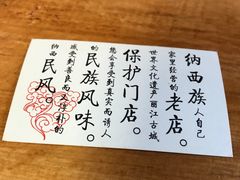 纳西族人自己
家里经营的老店。
世界文化遗产丽江古城
保护门店。
能会享受到真实而诱人
的民族风味。
感受到善良而又淳朴的
纳西民风。